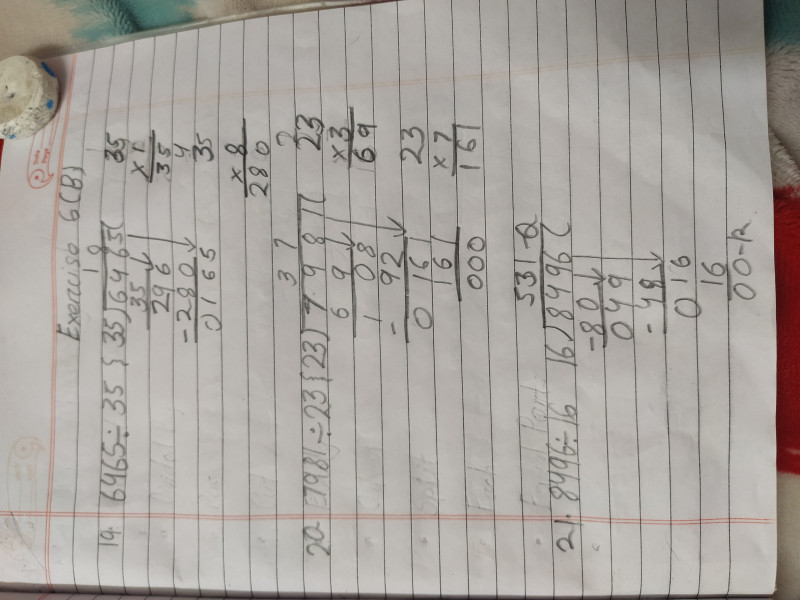 Exercise 6(B)
19. 6465÷35
18
35)6465(
35
296
-280
0165
35
×1
35
4
35
×8
280
20. 7981÷23
3 7
23)7981(
69
108
- 92
0 161
161
000
2
23
×3
69
23
×7
161
21. 8496÷16
531-Q
16)8496(
-80
049
-48
016
16
00-R